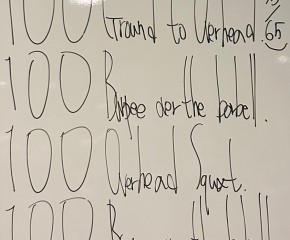 100 Ground to Overhead. 65
100 Burpee over the barbell.
100 Overhead Squat.
100